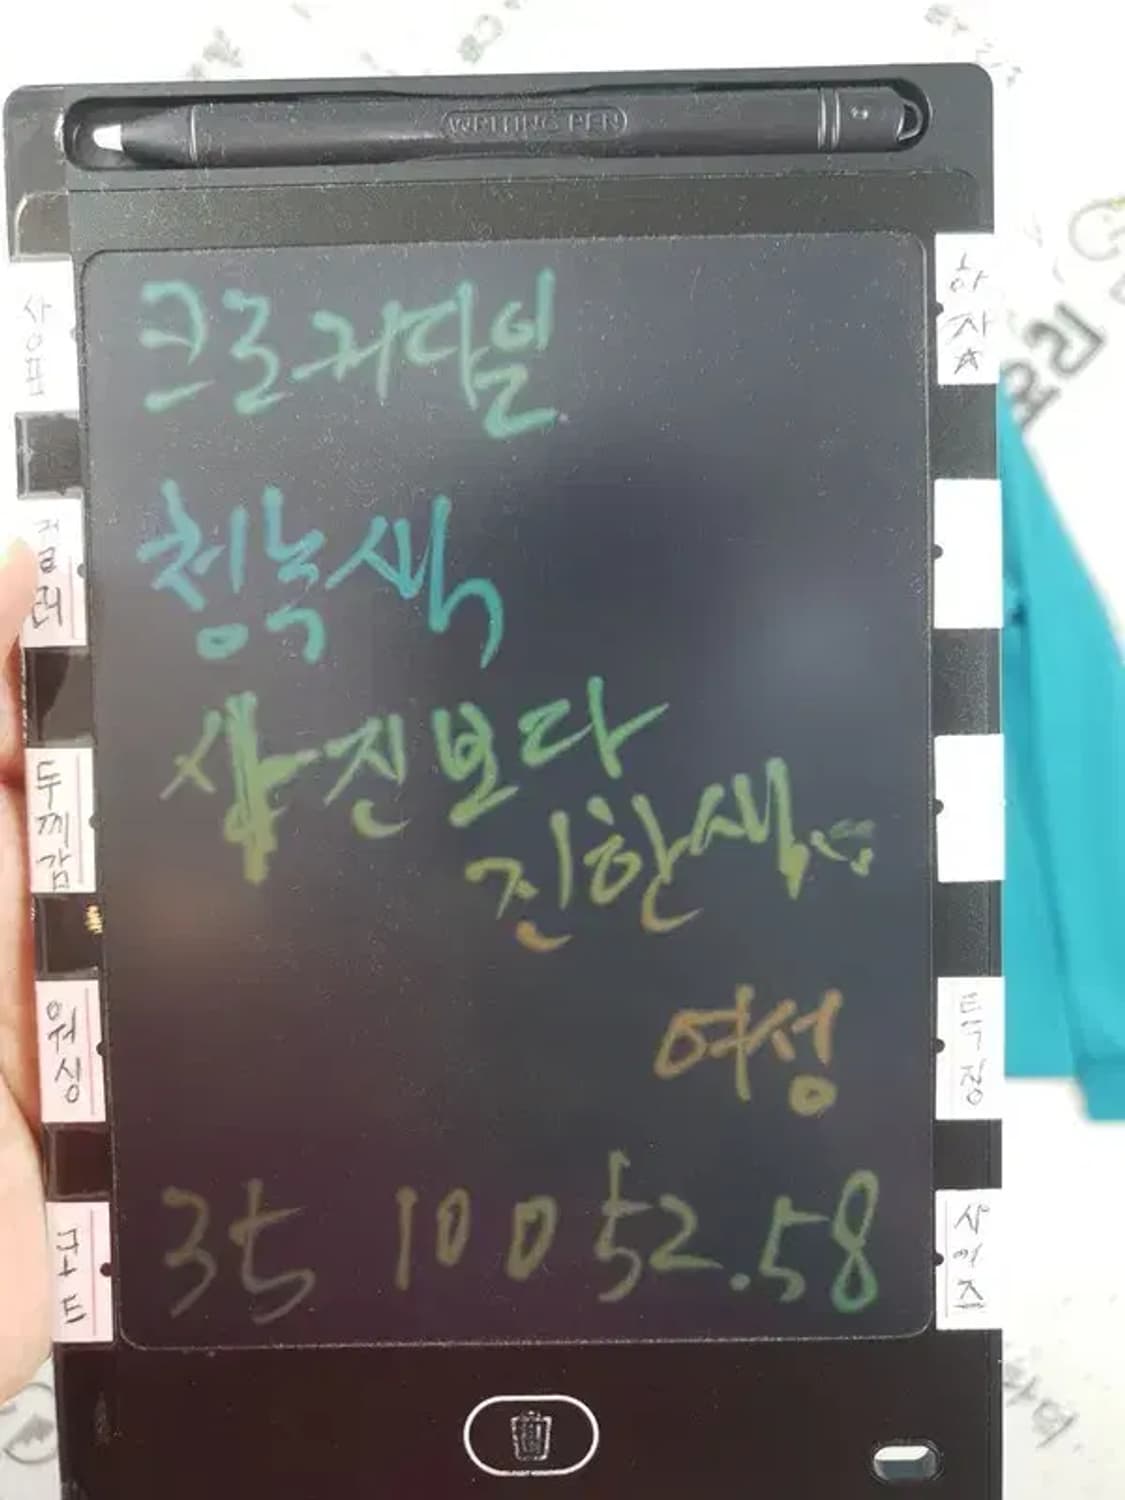 WRITING PEN
크로커다일
청녹색
사진보다
진한색
여성
35 100 52.58
상표
컬러
두께감
워싱
코드
하자☆
특징
사이즈
요리